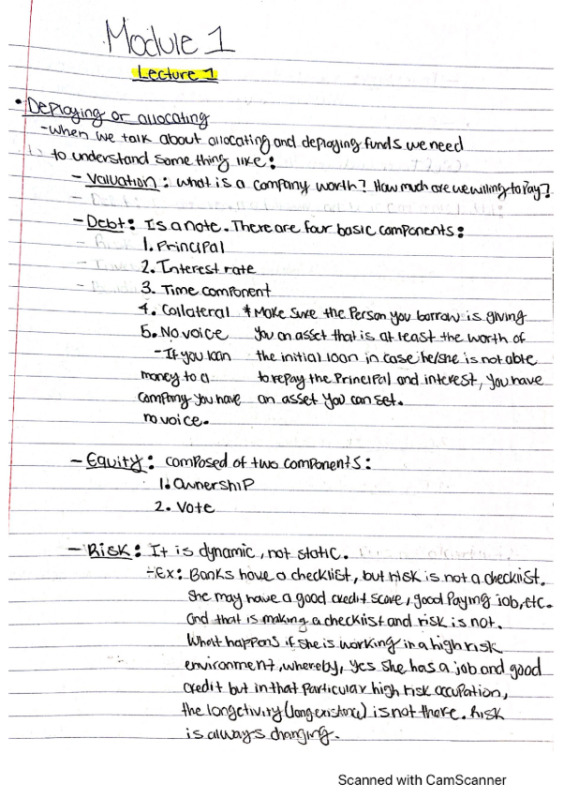 Module 1
Lecture 1
• Deploying or allocating
-When we talk about allocating and deploying funds we need
to understand some thing like:
- Valuation: What is a company worth? How much are we willing to pay?
- Debt: Is a note. There are four basic components:
1. Principal
2. Interest rate
3. Time component
4. Collateral * Make sure the Person you borrow is giving
5. No voice you an asset that is at least the worth of
-If you loan the initial loan in case he/she is not able
money to a to repay the Principal and interest, you have
company you have an asset you can set.
no voice.
- Equity: composed of two components:
1. Ownership
2. Vote
- Risk: It is dynamic, not static.
-Ex: Banks have a checklist, but risk is not a checklist.
She may have a good credit score, good Paying job, etc.
And that is making a checklist and risk is not.
What happens if she is working in a high risk
environment, whereby, yes she has a job and good
credit but in that particular high risk occupation,
the longctivity (long existence) is not there. Risk
is always changing.
Scanned with CamScanner